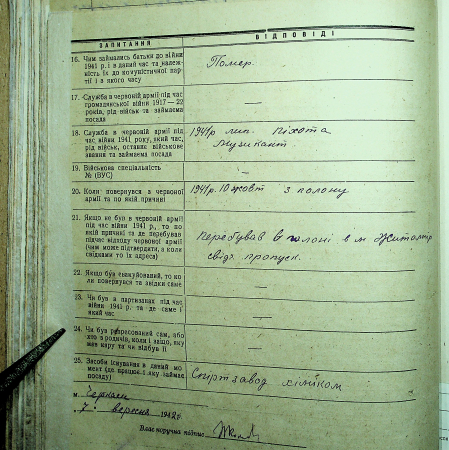 ЗАПИТАННЯ
ВІДПОВІДІ
16. Чим займались батьки до війни
1941 р. і в даний час та належ-
ність їх до комуністичної пар-
тії і в якого часу
Помер.
17. Служба в червоній армії під час
громадянської війни 1917—22
років, рід військ та займаєма
посада
—
18. Служба в червоній армії під
час війни 1941 року, який час,
рід військ, останнє військове
звання та займаєма посада
1941р лип. Піхота
Музикант
19. Військова спеціяльність
№ (ВУС)
—
20. Коли повернувся з червоної
армії та по якій причині
1941р. 10 жовт з полону
21. Якщо не був в червоній армії
під час війни 1941 р., то по
якій причині та де перебував
підчас відходу червоної армії
(чим може підтвердити, а коли
свідками то їх адреса)
Перебував в полоні в м. Житомір
свідч. пропуск.
22. Якщо був евакуйований, то ко-
ли повернувся та звідки саме
—
23. Чи був в партизанах під час
війни 1941 р. та де саме і
який час
—
24. Чи був репресований сам, або
хто з родичів, коли і защо, яку
мав кару та чи відбув її
—
25. Засоби існування в даний мо-
мент (де працює і яку займає
посаду)
Спиртзавод хіміком
м. Черкаси
7. вересня 1942 р.
Власноручна підпис